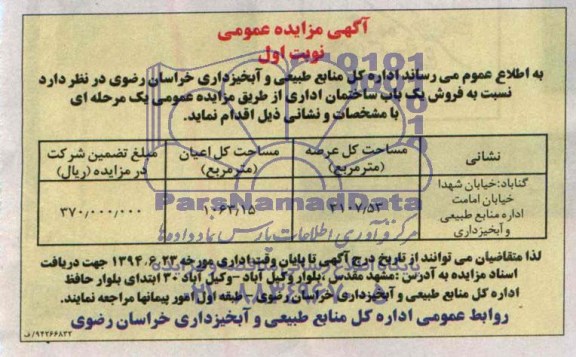 آگهی مزایده عمومی
نوبت اول
به اطلاع عموم می رساند اداره کل منابع طبیعی و آبخیزداری خراسان رضوی در نظر دارد
نسبت به فروش یک باب ساختمان اداری از طریق مزایده عمومی یک مرحله ای
با مشخصات و نشانی ذیل اقدام نماید.
نشانی مساحت کل عرصه (مترمربع) مساحت کل اعیان (مترمربع) مبلغ تضمین شرکت در مزایده (ریال)
گناباد: خیابان شهدا
خیابان امامت
اداره منابع طبیعی
و آبخیزداری
۲۱۰۷/۵۳ ۱۰۶۳/۱۵ ۳۷۰,۰۰۰,۰۰۰
ParsNamadData
مرکز فرآوری اطلاعات پارس نماد داده ها
لذا متقاضیان می توانند از تاریخ درج آگهی تا پایان وقت اداری مورخه ۱۳۹۴,۶,۲۳ جهت دریافت
اسناد مزایده به آدرس: مشهد مقدس، بلوار وکیل آباد - وکیل آباد ۳۰ ابتدای بلوار حافظ
اداره کل منابع طبیعی و آبخیزداری خراسان رضوی، طبقه اول امور پیمانها مراجعه نمایند.
روابط عمومی اداره کل منابع طبیعی و آبخیزداری خراسان رضوی
۹۴۲۶۶۸۳۲/ف